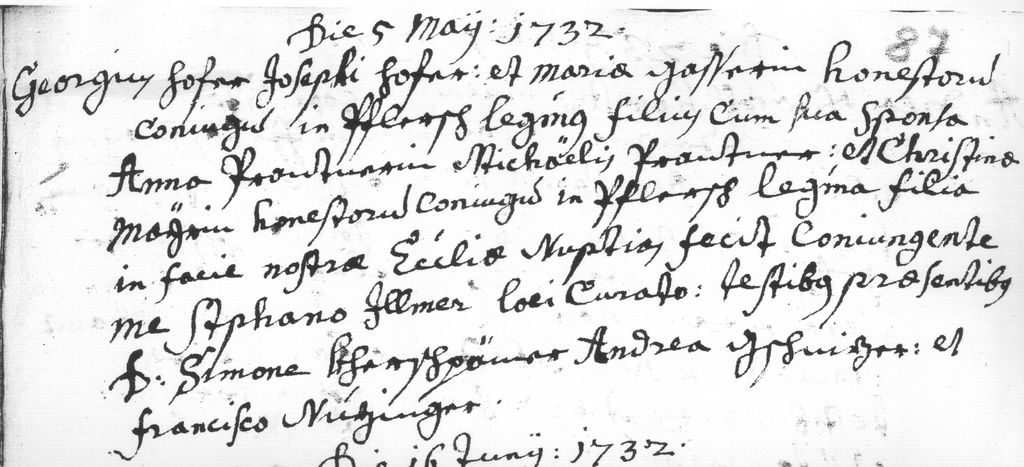 Die 5 Maÿ: 1732.
87
Georgius Hofer Josephi Hofer: et Mariæ Gasserin honestorū
Coniugū in Pflersch legīmus filius Cum sua Sponsa
Anna Prantnerin Michäelis Prantner: et Christinæ
Maÿrin honestorū Coniugū in Pflersch legīma filia
in facie nostræ Eccliæ Nuptias fecit Coniungente
me Stphano Illmer loci Curato: testibus præsentibus
D: Simone Kherschpämer Andrea Gschnizer: et
Francisco Nüzinger.
Die 16 Junÿ: 1732.